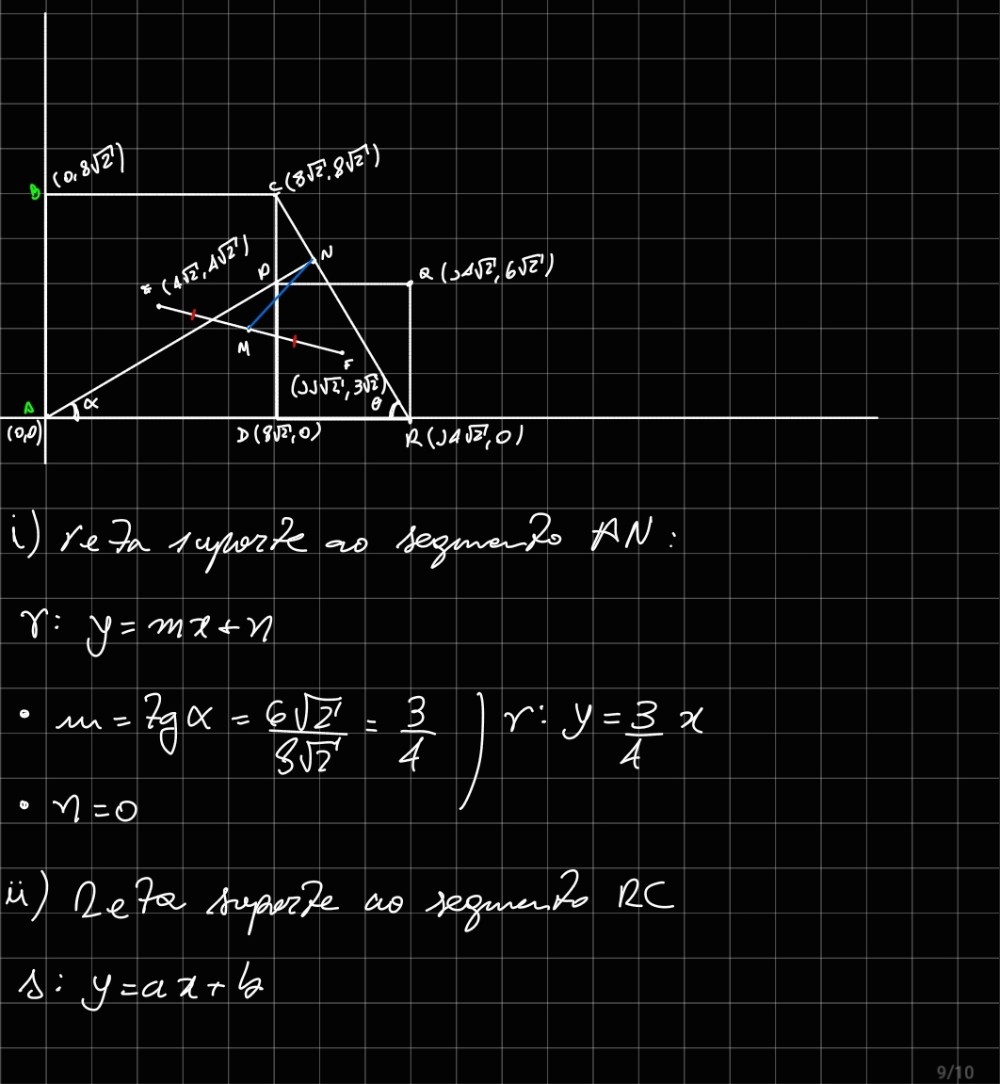 (0,8√2)
B
C(8√2,8√2)
E (4√2,4√2)
P
N
Q (14√2,6√2)
M
F
(11√2,3√2)
A
α
θ
(0,0)
D(8√2,0)
R(14√2,0)
i) reta suporte ao segmento AN:
r: y=mx+n
• m = tgα = 6√2/8√2 = 3/4 ) r: y=3/4 x
• n=0
ii) Reta suporte ao segmento RC
s: y=ax+b
9/10